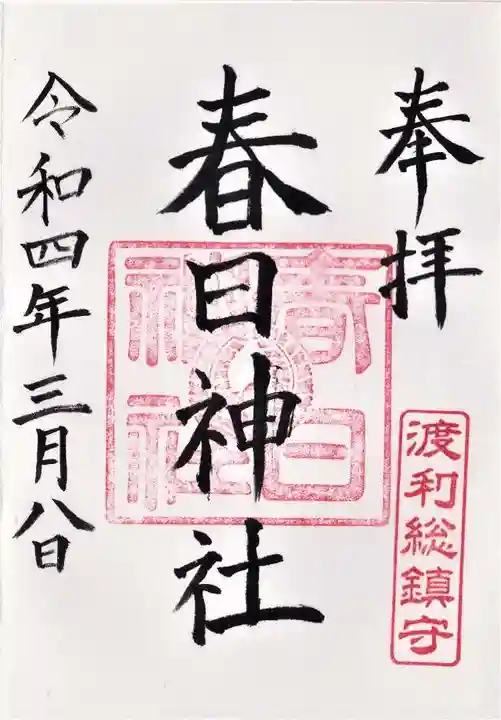 奉拝
渡利総鎮守
春日神社
春日神社
令和四年三月八日